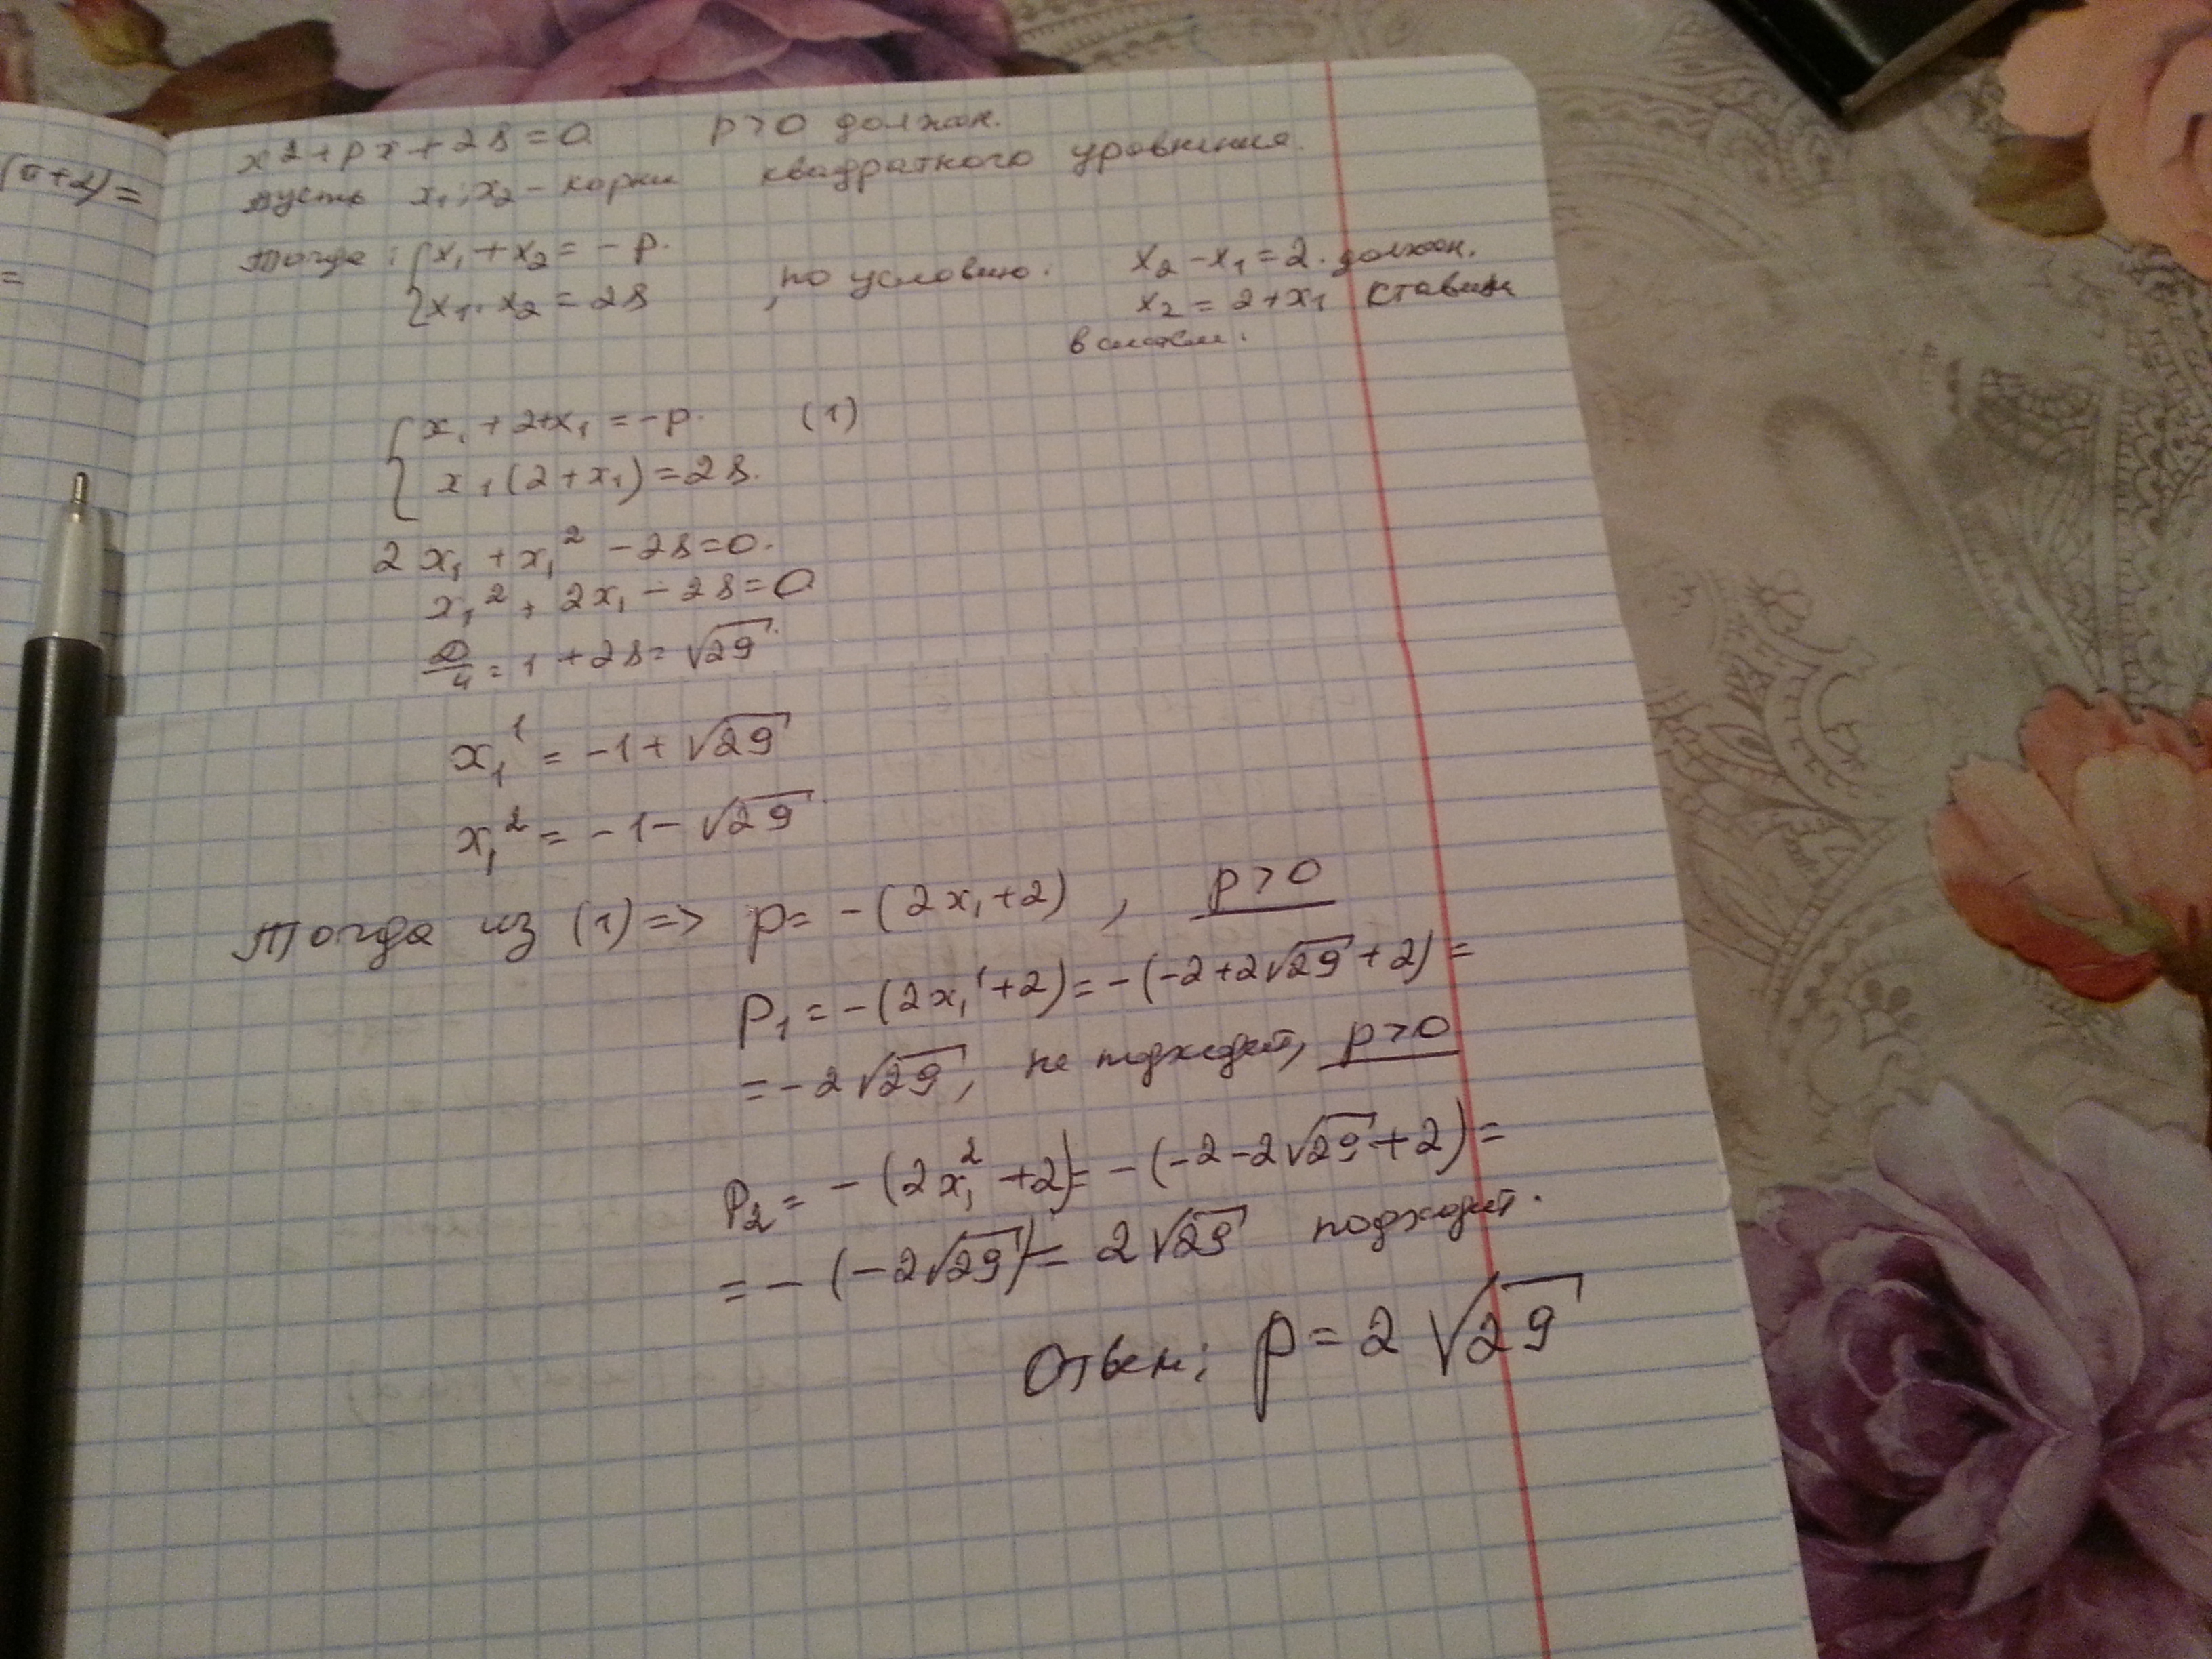 (a+2)=
=
x²+px+28=0 p>0 должен.
пусть x₁; x₂ - корни квадратного уровнения.
Тогда: {x₁+x₂=-p.
x₁·x₂=28 , по условию. x₂-x₁=2. должен.
x₂=2+x₁ ставим
в систем.
{x₁+2+x₁=-p. (1)
x₁(2+x₁)=28.
2x₁+x₁²-28=0.
x₁²+2x₁-28=0
D/4=1+28=√29.
x₁¹=-1+√29
x₁²=-1-√29
Тогда из (1)=> p=-(2x₁+2), p>0
P₁=-(2x₁¹+2)=-(-2+2√29+2)=
=-2√29, не подходит, p>0
P₂=-(2x₁²+2)=-(-2-2√29+2)=
=-(-2√29)=2√29 подходит.
Ответ: p=2√29